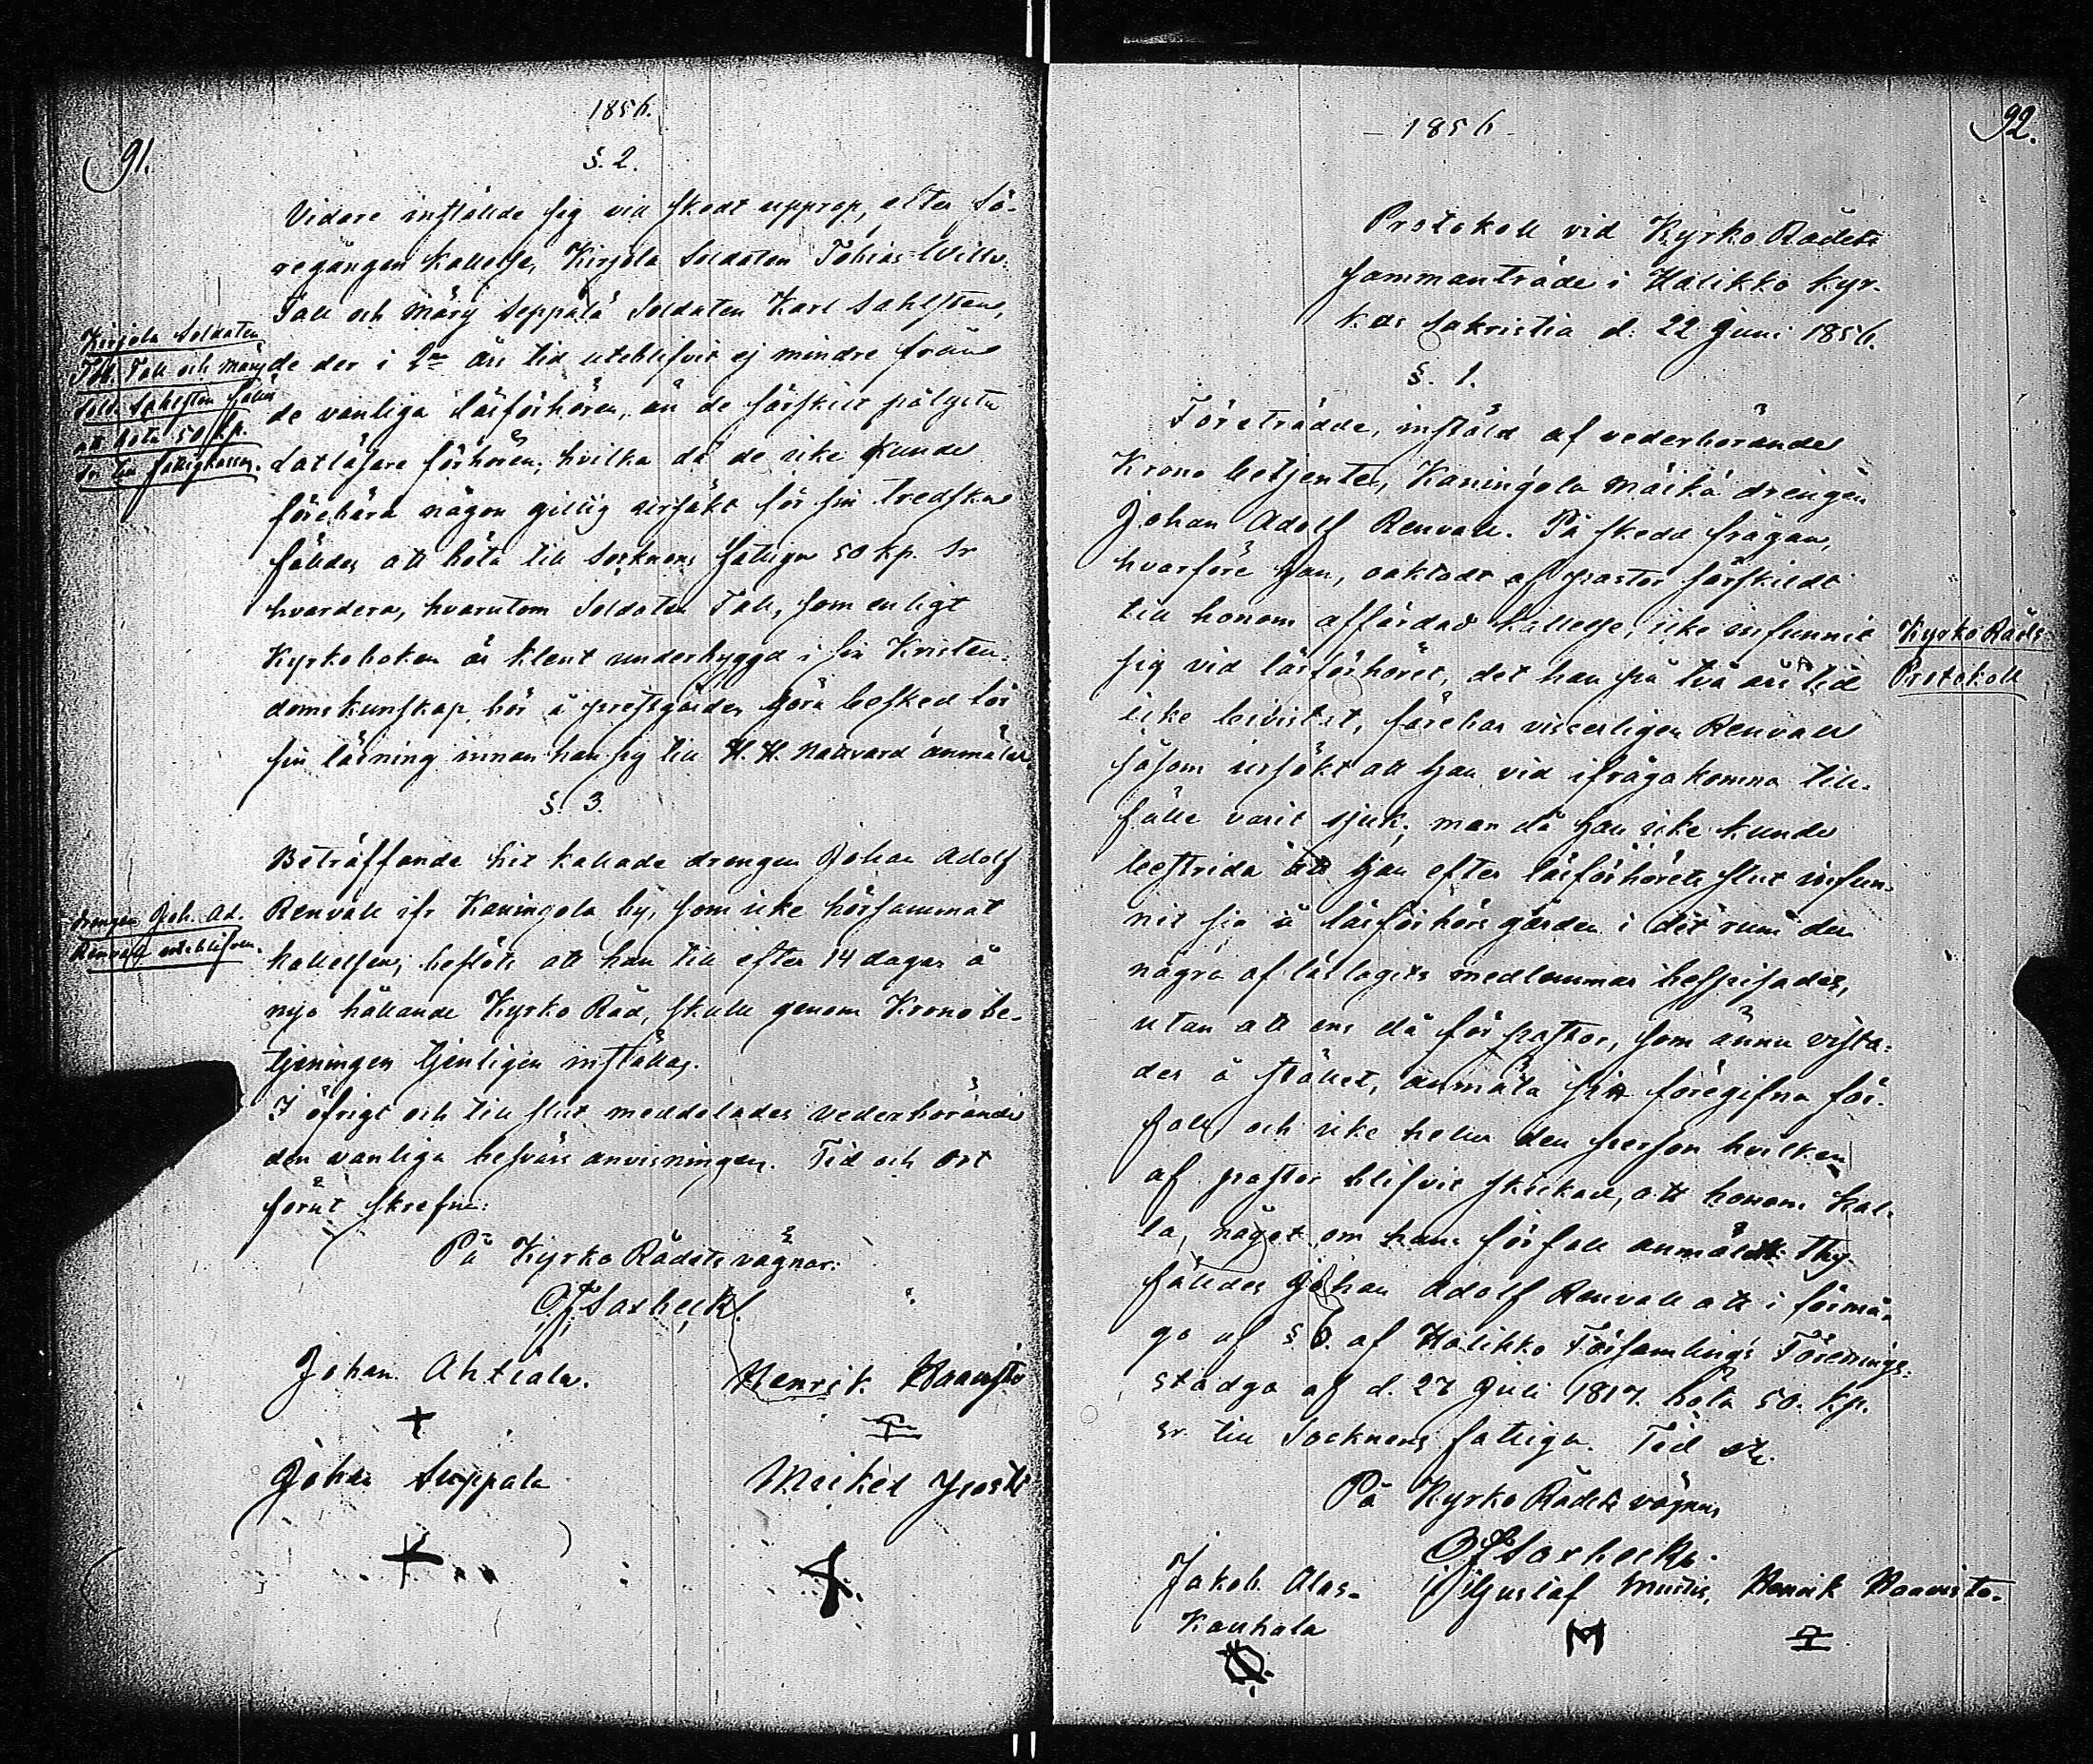 1856.
91.
§. 2.
Vidare instälde sig vid skedt upprop, efter fö-
regången kallelse, Kirjola Soldaten Tobias Wilh:
Tall och Märy Seppälä Soldaten Karl Sahlsten,
Kirjola Soldaten
Tall och Märy
Sold. Sahlsten fälde
att böta 50 kp.
Sr till fattigkassan.
de der i 2ne års tid uteblifvit ej mindre från
de vanliga läsförhören, än de särskilt pålysta
datläsare förhören; hvilka då de icke kunde
förebära någon giltig ursäkt för sin tredska
fälldes att böta till Socknens fattiga 50 kp. Sr
hvardera, hvarutom Soldaten Tall, som enligt
Kyrkoboken är klent underbyggd i sin Kristen-
doms kunskap bör å prestgården göra besked för
sin läsning innan han sig till H. H. Nattvard anmäler
§. 3.
Beträffande hit kallade drengen Johan Adolf
drengen Joh. Ad.
Renvall uteblifven.
Renvall ifr Kaningola by, som icke hörsammat
kallelsen; beslöts att han till efter 14 dagar å
nyo hållande Kyrko Råd, skulle genom Kronobe-
tjeningen tjenligen inställas.
I öfrigt och till slut meddelades vederbörande
den vanliga besvärs anvisningen. Tid och Ort
förut skrefne:
På Kyrko Rådets vägnar:
Johan Ahtiala.
Henrik Haavisto
Johan Seppälä
Mickel
1856
92.
Protokoll vid Kyrko Rådets
sammanträde i Halikko Kyr-
kas sakristia d: 22 Juni 1856.
§. 1.
Företrädde, instäld af vederbörande
Krono betjente, Kaningola Mäikä drengen
Johan Adolf Renvall. På skedd frågan,
hvarföre han, oaktadt af pastor särskildt
till honom affärdad kallelse, icke infunnit
Kyrko Råds
Protokoll
sig vid läsförhöret, det han på två års tid
icke bevistat, förebar visserligen Renvall
såsom ursäkt att han vid ifråga komna till-
fälle varit sjuk; men då han icke kunde
bestrida att han efter läsförhörets slut infun-
nit sig å läsförhörs gården i det rum der
några af läslagets medlemmar bespisades,
utan att ens då för pastor, som ännu vista-
des å stället, anmäla sitt föregifna för-
fall och icke heller den person hvilken
af pastor blifvit skickad, att honom kal-
la, något om hans förfall anmält: Thy
fälldes Johan Adolf Renvall att i förmå-
go af § 6. af Halikko Församlings Förenings-
stadga af d. 27 Juli 1817. böta 50. kp.
Sr. till Socknens fattiga. Tid etc.
På Kyrko Rådets vägnar
Jakob Alas-
Gustaf
Henrik Haavisto.
Kauhala